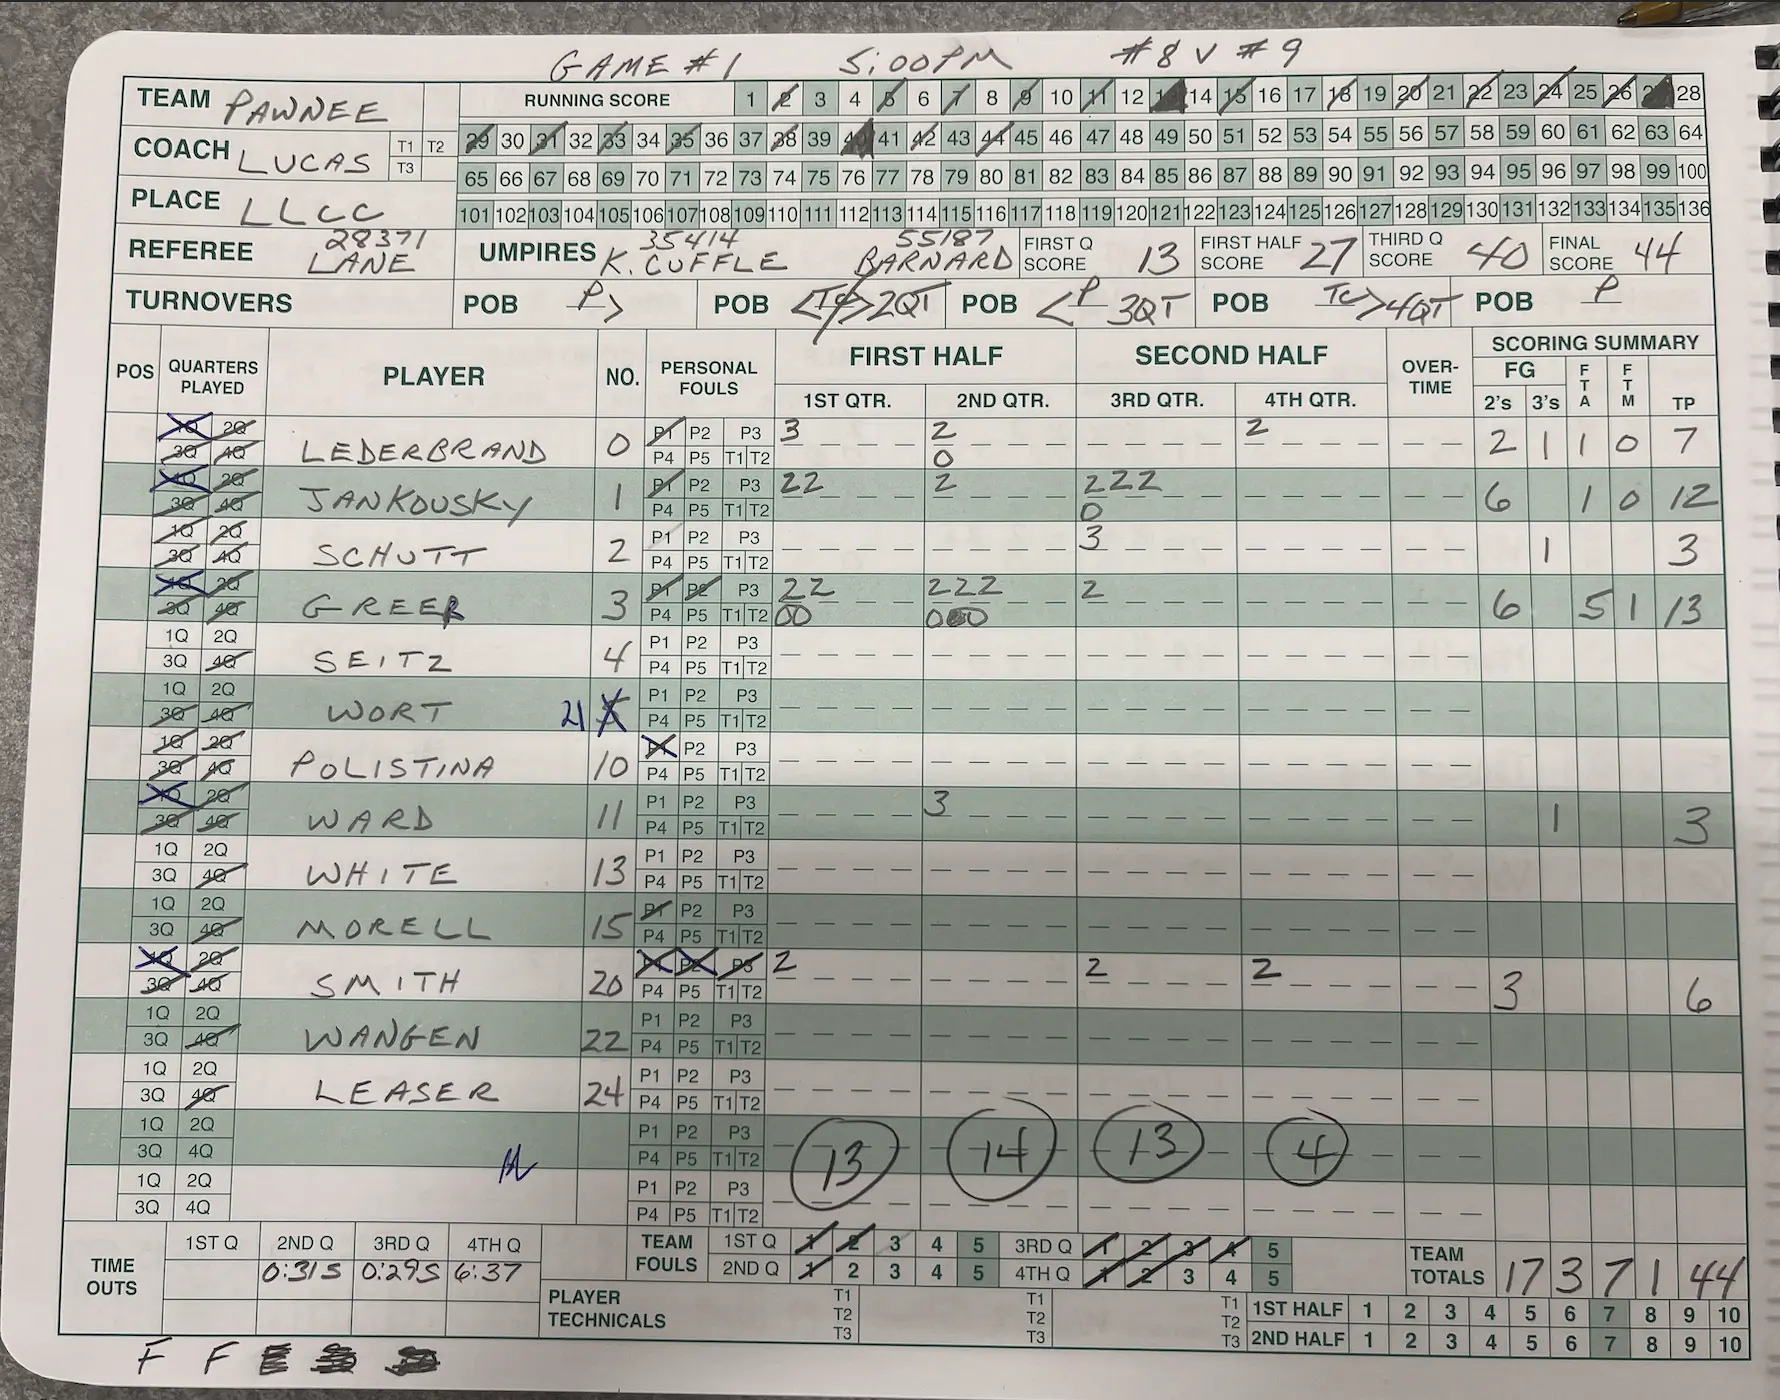 GAME #1 5:00PM #8 V #9
TEAM PAWNEE
RUNNING SCORE 1 2 3 4 5 6 7 8 9 10 11 12 13 14 15 16 17 18 19 20 21 22 23 24 25 26 27 28
COACH LUCAS T1 T2 T3
29 30 31 32 33 34 35 36 37 38 39 40 41 42 43 44 45 46 47 48 49 50 51 52 53 54 55 56 57 58 59 60 61 62 63 64
65 66 67 68 69 70 71 72 73 74 75 76 77 78 79 80 81 82 83 84 85 86 87 88 89 90 91 92 93 94 95 96 97 98 99 100
PLACE LLCC
101 102 103 104 105 106 107 108 109 110 111 112 113 114 115 116 117 118 119 120 121 122 123 124 125 126 127 128 129 130 131 132 133 134 135 136
REFEREE 28371 LANE UMPIRES 35414 K. CUFFLE 55187 BARNARD FIRST Q SCORE 13 FIRST HALF SCORE 27 THIRD Q SCORE 40 FINAL SCORE 44
TURNOVERS POB P> POB <TC> 2QT POB <P 3QT POB TC> 4QT POB P
POS QUARTERS PLAYED PLAYER NO. PERSONAL FOULS FIRST HALF SECOND HALF OVER-TIME SCORING SUMMARY
1ST QTR. 2ND QTR. 3RD QTR. 4TH QTR. FG 2's 3's FTA FTM TP
1Q 2Q 3Q 4Q LEDERBRAND 0 P1 P2 P3 P4 P5 T1 T2 3 2 0 2 2 1 1 0 7
1Q 2Q 3Q 4Q JANKOUSKY 1 P1 P2 P3 P4 P5 T1 T2 22 2 222 0 6 1 0 12
1Q 2Q 3Q 4Q SCHUTT 2 P1 P2 P3 P4 P5 T1 T2 3 1 3
1Q 2Q 3Q 4Q GREER 3 P1 P2 P3 P4 P5 T1 T2 22 00 222 000 2 6 5 1 13
1Q 2Q 3Q 4Q SEITZ 4 P1 P2 P3 P4 P5 T1 T2
1Q 2Q 3Q 4Q WORT 21 P1 P2 P3 P4 P5 T1 T2
1Q 2Q 3Q 4Q POLISTINA 10 P1 P2 P3 P4 P5 T1 T2
1Q 2Q 3Q 4Q WARD 11 P1 P2 P3 P4 P5 T1 T2 3 1 3
1Q 2Q 3Q 4Q WHITE 13 P1 P2 P3 P4 P5 T1 T2
1Q 2Q 3Q 4Q MORELL 15 P1 P2 P3 P4 P5 T1 T2
1Q 2Q 3Q 4Q SMITH 20 P1 P2 P3 P4 P5 T1 T2 2 2 2 3 6
1Q 2Q 3Q 4Q WANGEN 22 P1 P2 P3 P4 P5 T1 T2
1Q 2Q 3Q 4Q LEASER 24 P1 P2 P3 P4 P5 T1 T2
1Q 2Q 3Q 4Q P1 P2 P3 P4 P5 T1 T2 13 14 13 4
1Q 2Q 3Q 4Q P1 P2 P3 P4 P5 T1 T2
TIME OUTS 1ST Q 2ND Q 3RD Q 4TH Q
0:31S 0:29S 6:37
TEAM FOULS 1ST Q 1 2 3 4 5 3RD Q 1 2 3 4 5
2ND Q 1 2 3 4 5 4TH Q 1 2 3 4 5
TEAM TOTALS 17 3 7 1 44
PLAYER TECHNICALS T1 T2 T3 T1 T2 T3 T1 T2 T3
1ST HALF 1 2 3 4 5 6 7 8 9 10
2ND HALF 1 2 3 4 5 6 7 8 9 10
F F